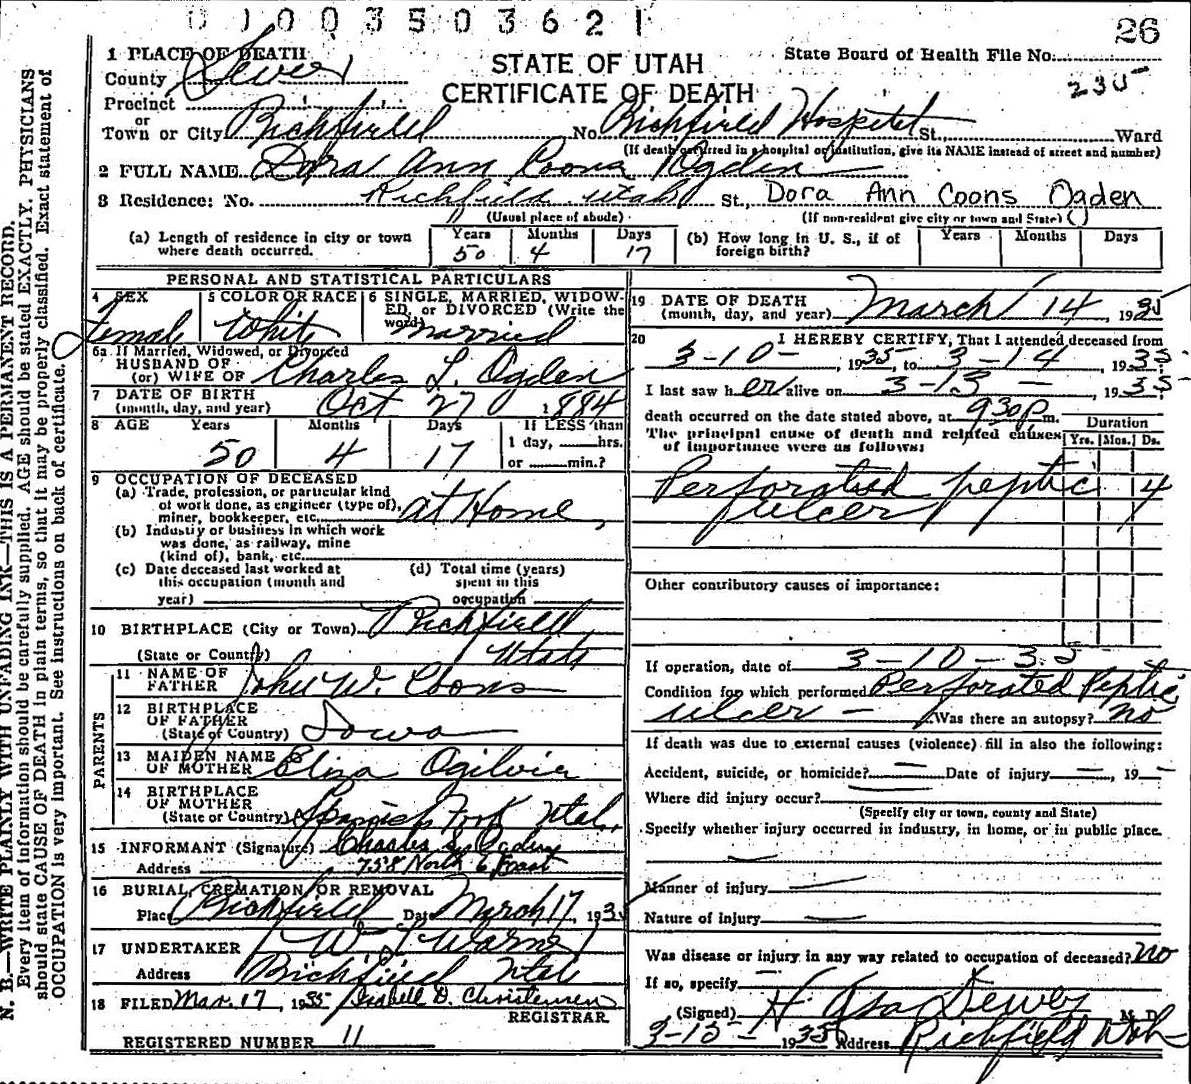 0 0 0 0 3 5 0 3 6 2 1
26
STATE OF UTAH
CERTIFICATE OF DEATH
State Board of Health File No.
235
1 PLACE OF DEATH
County Sevier
Precinct
or
Town or City Richfield No. Richfield Hospital St., Ward
(If death occurred in a hospital or institution, give its NAME instead of street and number)
2 FULL NAME Dora Ann Coons Ogden
3 Residence: No. Richfield Utah St., Dora Ann Coons Ogden
(Usual place of abode) (If non-resident give city or town and State)
(a) Length of residence in city or town where death occurred. Years 50 Months 4 Days 17
(b) How long in U. S., if of foreign birth? Years Months Days
PERSONAL AND STATISTICAL PARTICULARS
4 SEX Female
5 COLOR OR RACE White
6 SINGLE, MARRIED, WIDOWED, or DIVORCED (Write the word) Married
6a If Married, Widowed, or Divorced
HUSBAND OF
(or) WIFE OF Charles L. Ogden
7 DATE OF BIRTH
(month, day, and year) Oct 27 1884
8 AGE Years 50 Months 4 Days 17 If LESS than 1 day, hrs. or min.?
9 OCCUPATION OF DECEASED
(a) Trade, profession, or particular kind
of work done, as engineer (type of),
miner, bookkeeper, etc. at Home
(b) Industry or business in which work
was done, as railway, mine
(kind of), bank, etc.
(c) Date deceased last worked at
this occupation (month and
year)
(d) Total time (years)
spent in this
occupation
10 BIRTHPLACE (City or Town) Richfield
(State or Country) Utah
PARENTS
11 NAME OF
FATHER John W. Coons
12 BIRTHPLACE
OF FATHER
(State of Country) Iowa
13 MAIDEN NAME
OF MOTHER Eliza Ogilvie
14 BIRTHPLACE
OF MOTHER
(State or Country) Spanish Fork Utah
15 INFORMANT (Signature) Charles L Ogden
Address 758 North 6 East
16 BURIAL, CREMATION OR REMOVAL
Place Richfield Date March 17, 1935
17 UNDERTAKER W. Warne
Address Richfield Utah
18 FILED Mar. 17 1935 Isabell D. Christensen
REGISTRAR
REGISTERED NUMBER 11
19 DATE OF DEATH
(month, day, and year) March 14, 1935
20 I HEREBY CERTIFY, That I attended deceased from
3-10-, 1935, to 3-14, 1935.
I last saw her alive on 3-13-, 1935
death occurred on the date stated above, at 930p m.
The principal cause of death and related causes
of importance were as follows:
Duration
Yrs. Mos. Ds.
Perforated peptic 4
ulcer
Other contributory causes of importance:
If operation, date of 3-10-35
Condition for which performed Perforated Peptic
ulcer - Was there an autopsy? no
If death was due to external causes (violence) fill in also the following:
Accident, suicide, or homicide? — Date of injury —, 19 -
Where did injury occur?
(Specify city or town, county and State)
Specify whether injury occurred in industry, in home, or in public place.
Manner of injury
Nature of injury
Was disease or injury in any way related to occupation of deceased? no
If so, specify
(Signed) H Asa Dewey M. D.
3-15- 1935 Address Richfield Utah
N. B.—WRITE PLAINLY WITH UNFADING INK—THIS IS A PERMANENT RECORD.
Every item of information should be carefully supplied. AGE should be stated EXACTLY. PHYSICIANS
should state CAUSE OF DEATH in plain terms, so that it may be properly classified. Exact statement of
OCCUPATION is very important. See instructions on back of certificate.